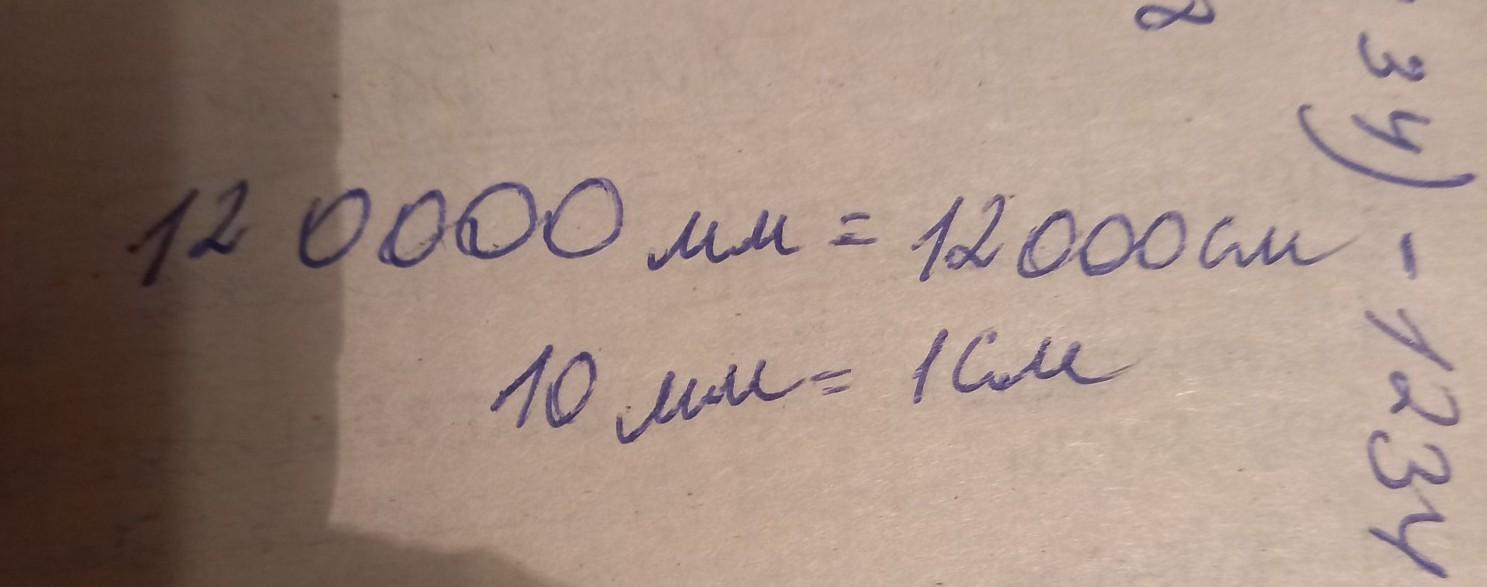 12 0000 мм = 12000 см
10 мм = 1 см
34) - 1234